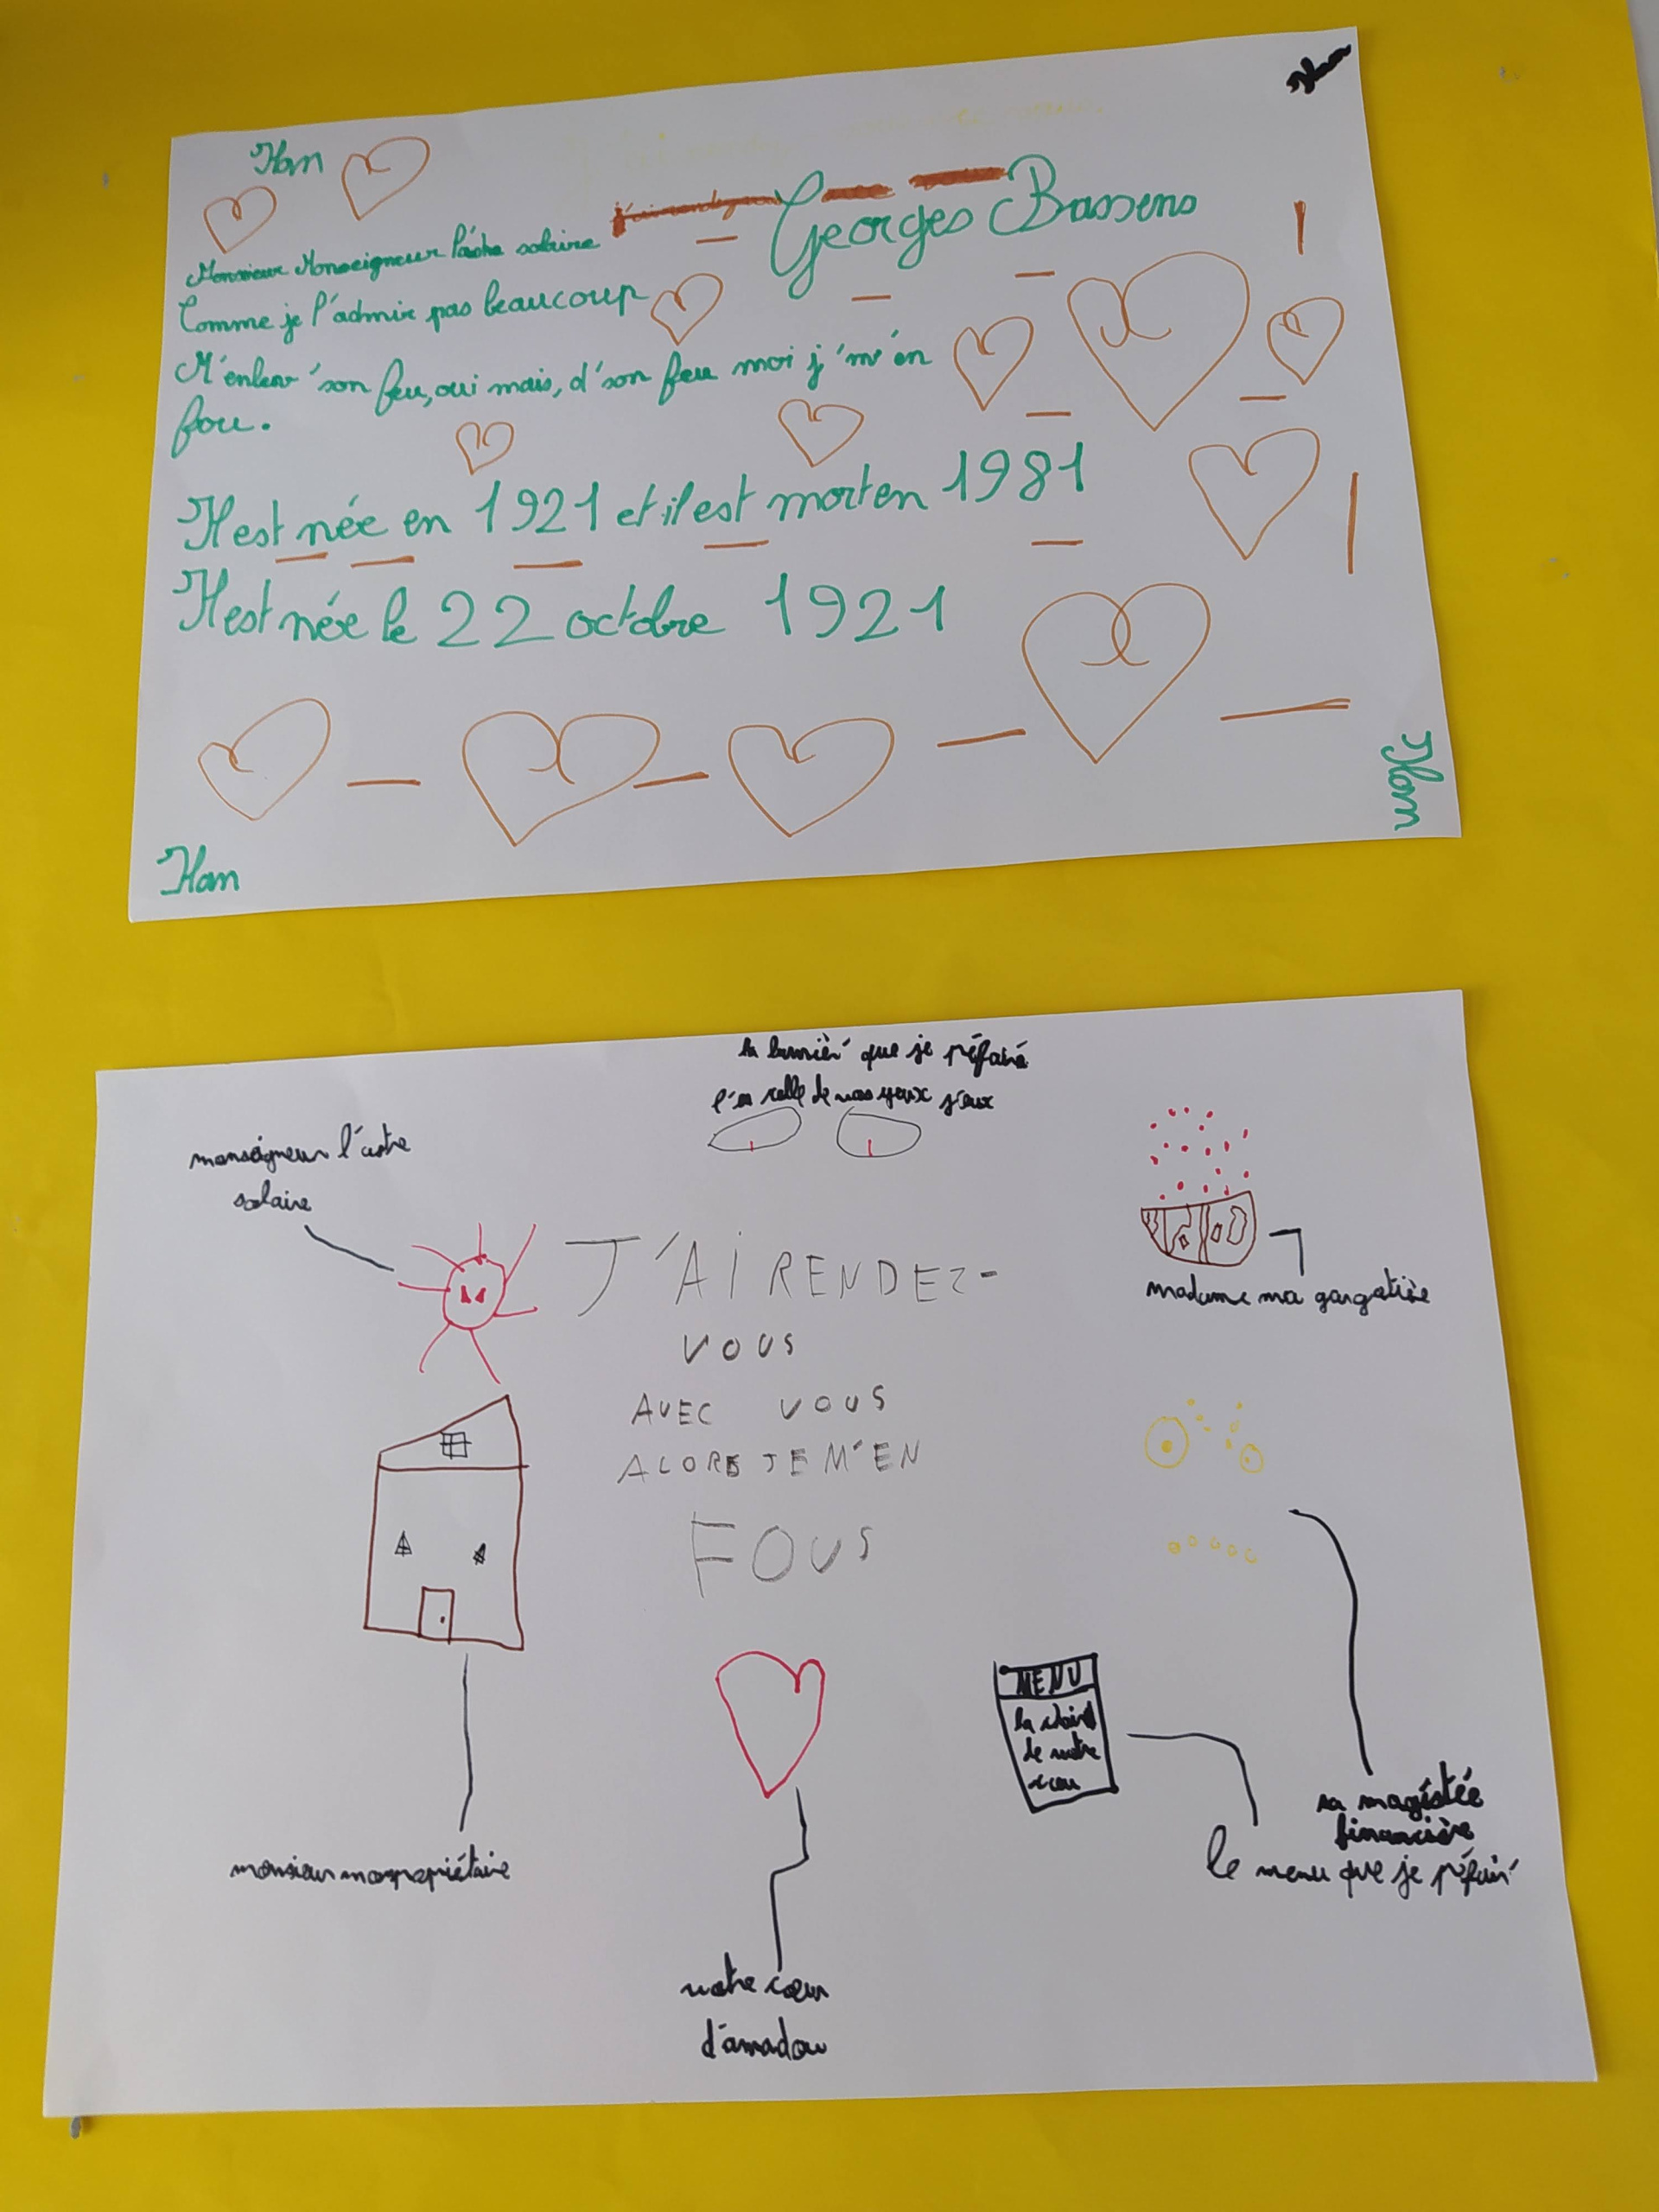 Ilan
Ilan
Georges Bassens
Monsieur Monseigneur l'astre solaire
Comme je l'admir pas beaucoup
M'enlev' son feu, oui mais, d'son feu moi j'm'en
fou.
Il est née en 1921 et il est mort en 1981
Il est née le 22 octobre 1921
Ilan
Ilan
la lumièr' que je préfair'
l'es celle de vos yeux j'eux
monseigneur l'astre
solaire
madame ma gargotière
J'AI RENDEZ-
VOUS
AVEC VOUS
ALORS JE M'EN
FOUS
MENU
de votre
sa magistée
financière
le menu que je préfair'
monsieur mon propriétaire
votre cœur
d'amadou